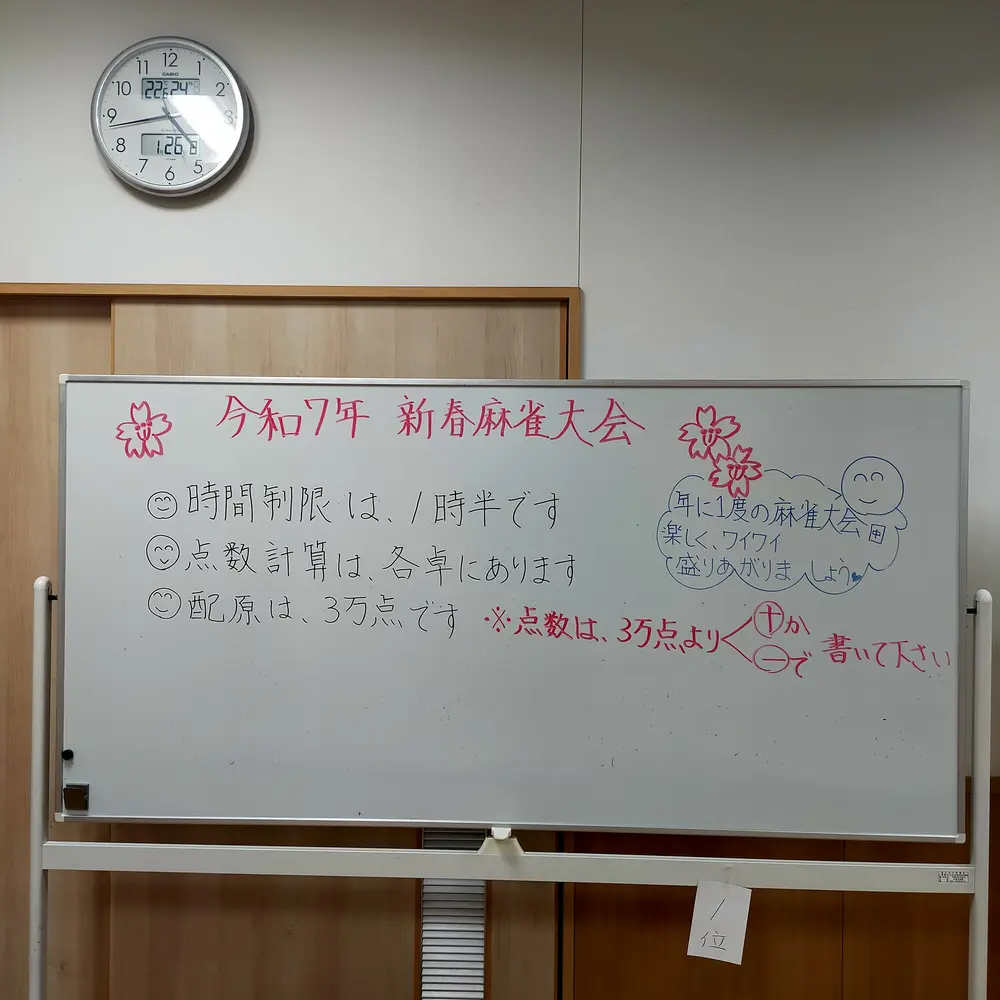 12
11
1
CASIO
10
2
22 24
9
3
8
1 26
7
5
6
令和7年 新春麻雀大会
時間制限は、1時半です
点数計算は、各卓にあります
配原は、3万点です
※点数は、3万点より
⊕か
⊖で
書いて下さい
年に1度の麻雀大会
楽しく、ワイワイ
盛りあがりましょう
1
位